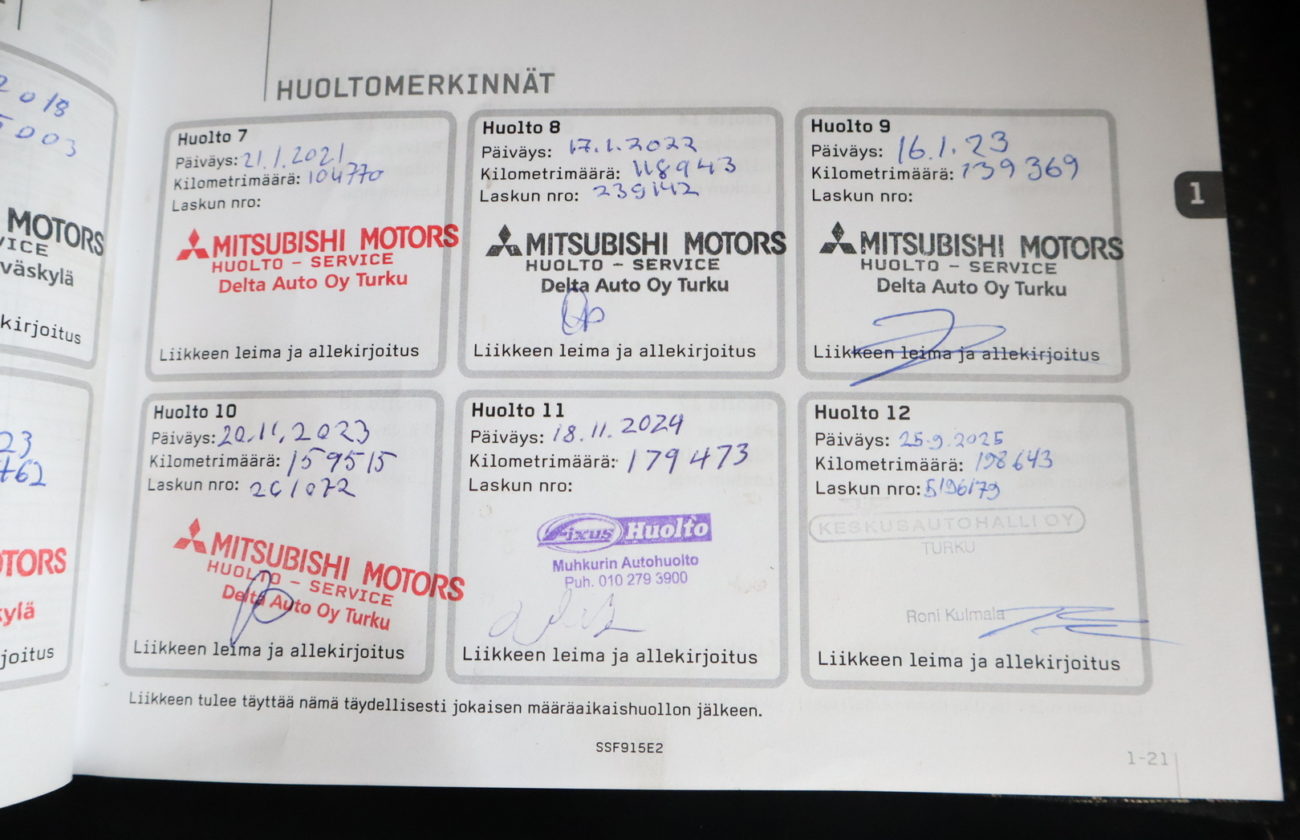 2018
5003
MOTORS
VICE
väskylä
kirjoitus
23
762
TORS
kylä
joitus
HUOLTOMERKINNÄT
Huolto 7
Päiväys: 21.1.2021
Kilometrimäärä: 104770
Laskun nro:
MITSUBISHI MOTORS
HUOLTO - SERVICE
Delta Auto Oy Turku
Liikkeen leima ja allekirjoitus
Huolto 8
Päiväys: 17.1.2022
Kilometrimäärä: 118943
Laskun nro: 239142
MITSUBISHI MOTORS
HUOLTO - SERVICE
Delta Auto Oy Turku
Liikkeen leima ja allekirjoitus
Huolto 9
Päiväys: 16.1.23
Kilometrimäärä: 139369
Laskun nro:
MITSUBISHI MOTORS
HUOLTO - SERVICE
Delta Auto Oy Turku
Liikkeen leima ja allekirjoitus
1
Huolto 10
Päiväys: 20.11.2023
Kilometrimäärä: 159515
Laskun nro: 261072
MITSUBISHI MOTORS
HUOLTO - SERVICE
Delta Auto Oy Turku
Liikkeen leima ja allekirjoitus
Huolto 11
Päiväys: 18.11.2024
Kilometrimäärä: 179473
Laskun nro:
Fixus Huolto
Muhkurin Autohuolto
Puh. 010 279 3900
Liikkeen leima ja allekirjoitus
Huolto 12
Päiväys: 25.9.2025
Kilometrimäärä: 198643
Laskun nro: 5196179
KESKUSAUTOHALLI OY
TURKU
Roni Kulmala
Liikkeen leima ja allekirjoitus
Liikkeen tulee täyttää nämä täydellisesti jokaisen määräaikaishuollon jälkeen.
SSF915E2
1-21